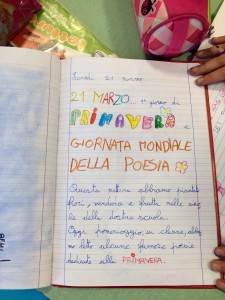 Lunedì 21 marzo
21 MARZO... 1° giorno di
PRIMAVERA e
GIORNATA MONDIALE
DELLA POESIA
Questa mattina abbiamo piantato
fiori, verdura e frutta nelle
le della nostra scuola.
Oggi pomeriggio, in classe, abbia
mo letto alcune famose poesie
dedicate alla PRIMAVERA.